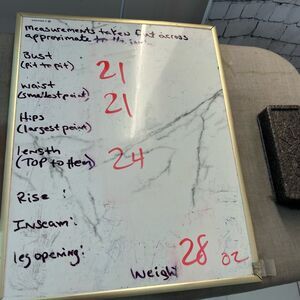 measurements taken flat across
approximate to the inch
Bust
(pit to pit) 21
waist
(smallest point) 21
Hips
(largest point)
length
(TOP to Hem) 24
Rise :
Inseam :
leg opening :
Weight 28 oz